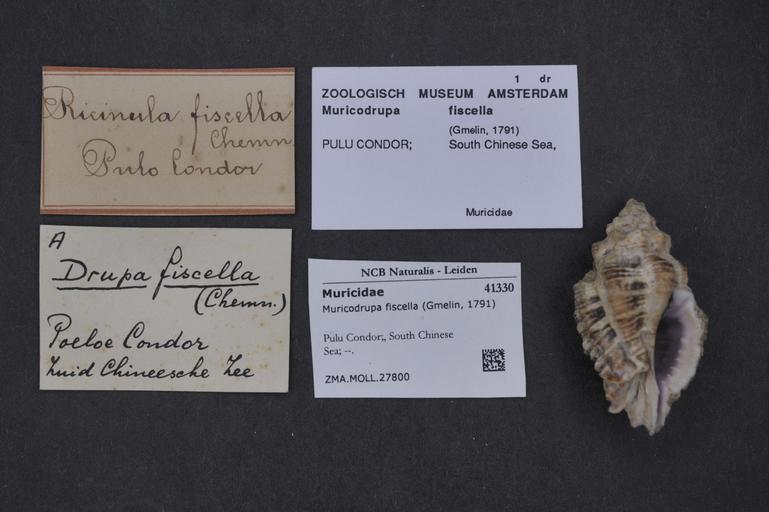 Ricinula fiscella
Chemn
Pulo Condor
1 dr
ZOOLOGISCH MUSEUM AMSTERDAM
Muricodrupa fiscella
(Gmelin, 1791)
PULU CONDOR; South Chinese Sea,
Muricidae
A
Drupa fiscella
(Chemn.)
Poeloe Condor
Zuid Chineesche Zee
NCB Naturalis - Leiden
Muricidae 41330
Muricodrupa fiscella (Gmelin, 1791)
Pulu Condor;, South Chinese
Sea; --.
ZMA.MOLL.27800